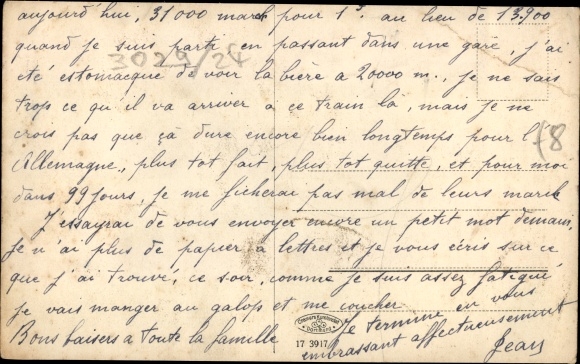 aujourd'hui, 31000 marck pour 1f. au lieu de 13.900
quand je suis parti en passant dans une gare, j'ai
3029/24
été estomacqué de voir la bière a 20000 m., je ne sais
trop ce qu'il va arriver a ce train là, mais je ne
crois pas que çà dure encore bien longtemps pour l'
(8
Allemagne, plus tot fait, plus tot quitte, et pour moi
dans 99 jours, je me ficherai pas mal de leurs marck
J'essayrai de vous envoyer encore un petit mot demain,
Je n'ai plus de papier a lettres et je vous écris sur ce
que j'ai trouvé, ce soir, comme je suis assez fatigué
je vais manger au galop et me coucher
Je termine en vous
Bons baisers a toute la famille
embrassant affectueusement
17 3917
Jean